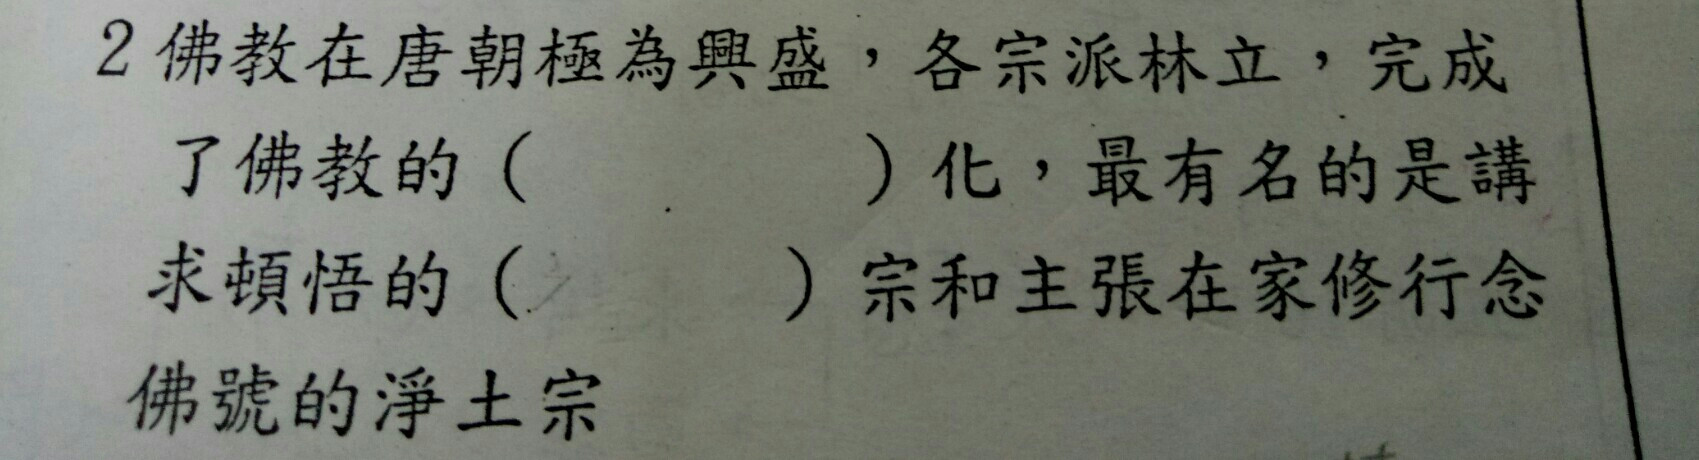 2佛教在唐朝極為興盛，各宗派林立，完成
了佛教的（　　　　）化，最有名的是講
求頓悟的（　　　　）宗和主張在家修行念
佛號的淨土宗